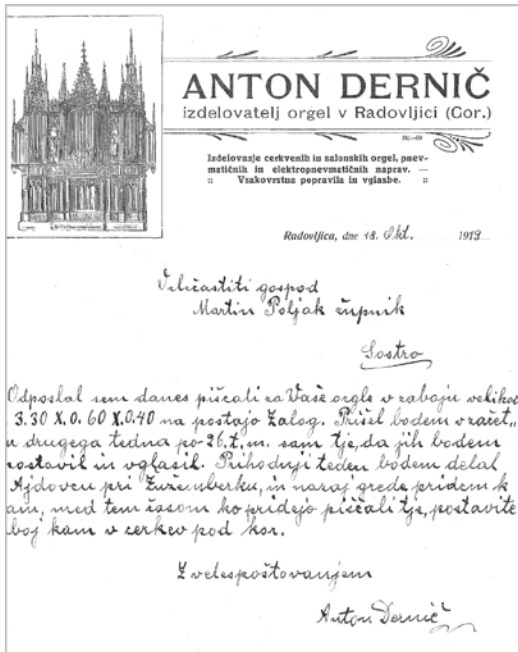 ANTON DERNIČ
izdelovatelj orgel v Radovljici (Gor.)
Izdelovanje cerkvenih in salonskih orgel, pnev-
matičnih in elektropnevmatičnih naprav. —
:: Vsakovrstna popravila in vglasbe. ::
Radovljica, dne 18. Okt. 1913
Velečastiti gospod
Martin Poljak župnik
Sostro
Odposlal sem danes piščali za Vaše orgle v zaboju velikos
3.30 X 0.60 X 0.40 na postajo Zalog. Prišel bodem v začet„
u drugega tedna po 26. t. m. sam tje, da jih bodem
postavil in vglasil. Prihodnji teden bodem delal
Ajdovcu pri Žužemberku, in nazaj grede pridem k
am, med tem časom ko pridejo piščali tje, postavite
boj kam v cerkev pod kor.
Z velespoštovanjem
Anton Dernič